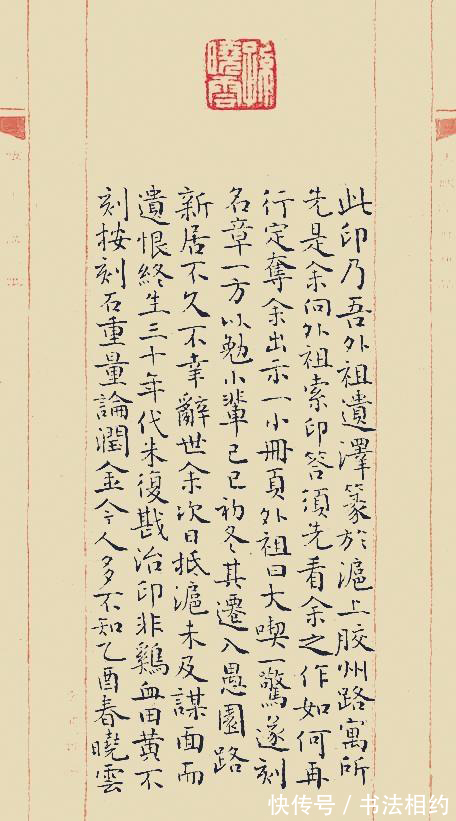 孫曉雲
此印乃吾外祖遺澤篆於滬上胶州路寓所
先是余向外祖索印答須先看余之作如何再
行定奪余出示一小冊頁外祖曰大喫一驚遂刻
名章一方以勉小輩己巳初冬其遷入愚園路
新居不久不幸辭世余次日抵滬未及謀面而
遺恨終生三十年代朱復戡治印非鷄血田黃不
刻按刻石重量論潤金今人多不知乙酉春曉雲
快传号 / 书法相约